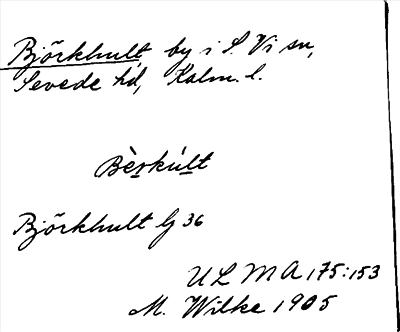 Björkhult, by i S. Vi sn,
Sevede hd, Kalm. l.
Bèrskúlt
Björkhult Lj 36
ULMA 175:153
M. Wilke 1905